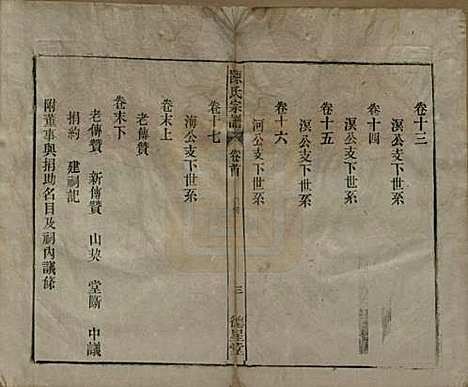 卷十三
溟公支下世系
卷十四
溟公支下世系
卷十五
溟公支下世系
卷十六
河公支下世系
陳氏宗譜 卷首 三 德星堂
卷十七
海公支下世系
卷末上
老傳贊
卷末下
老傳贊 新傳贊 山契 堂斷 中議
捐約 建祠記
附董事與捐助名目及祠內議條